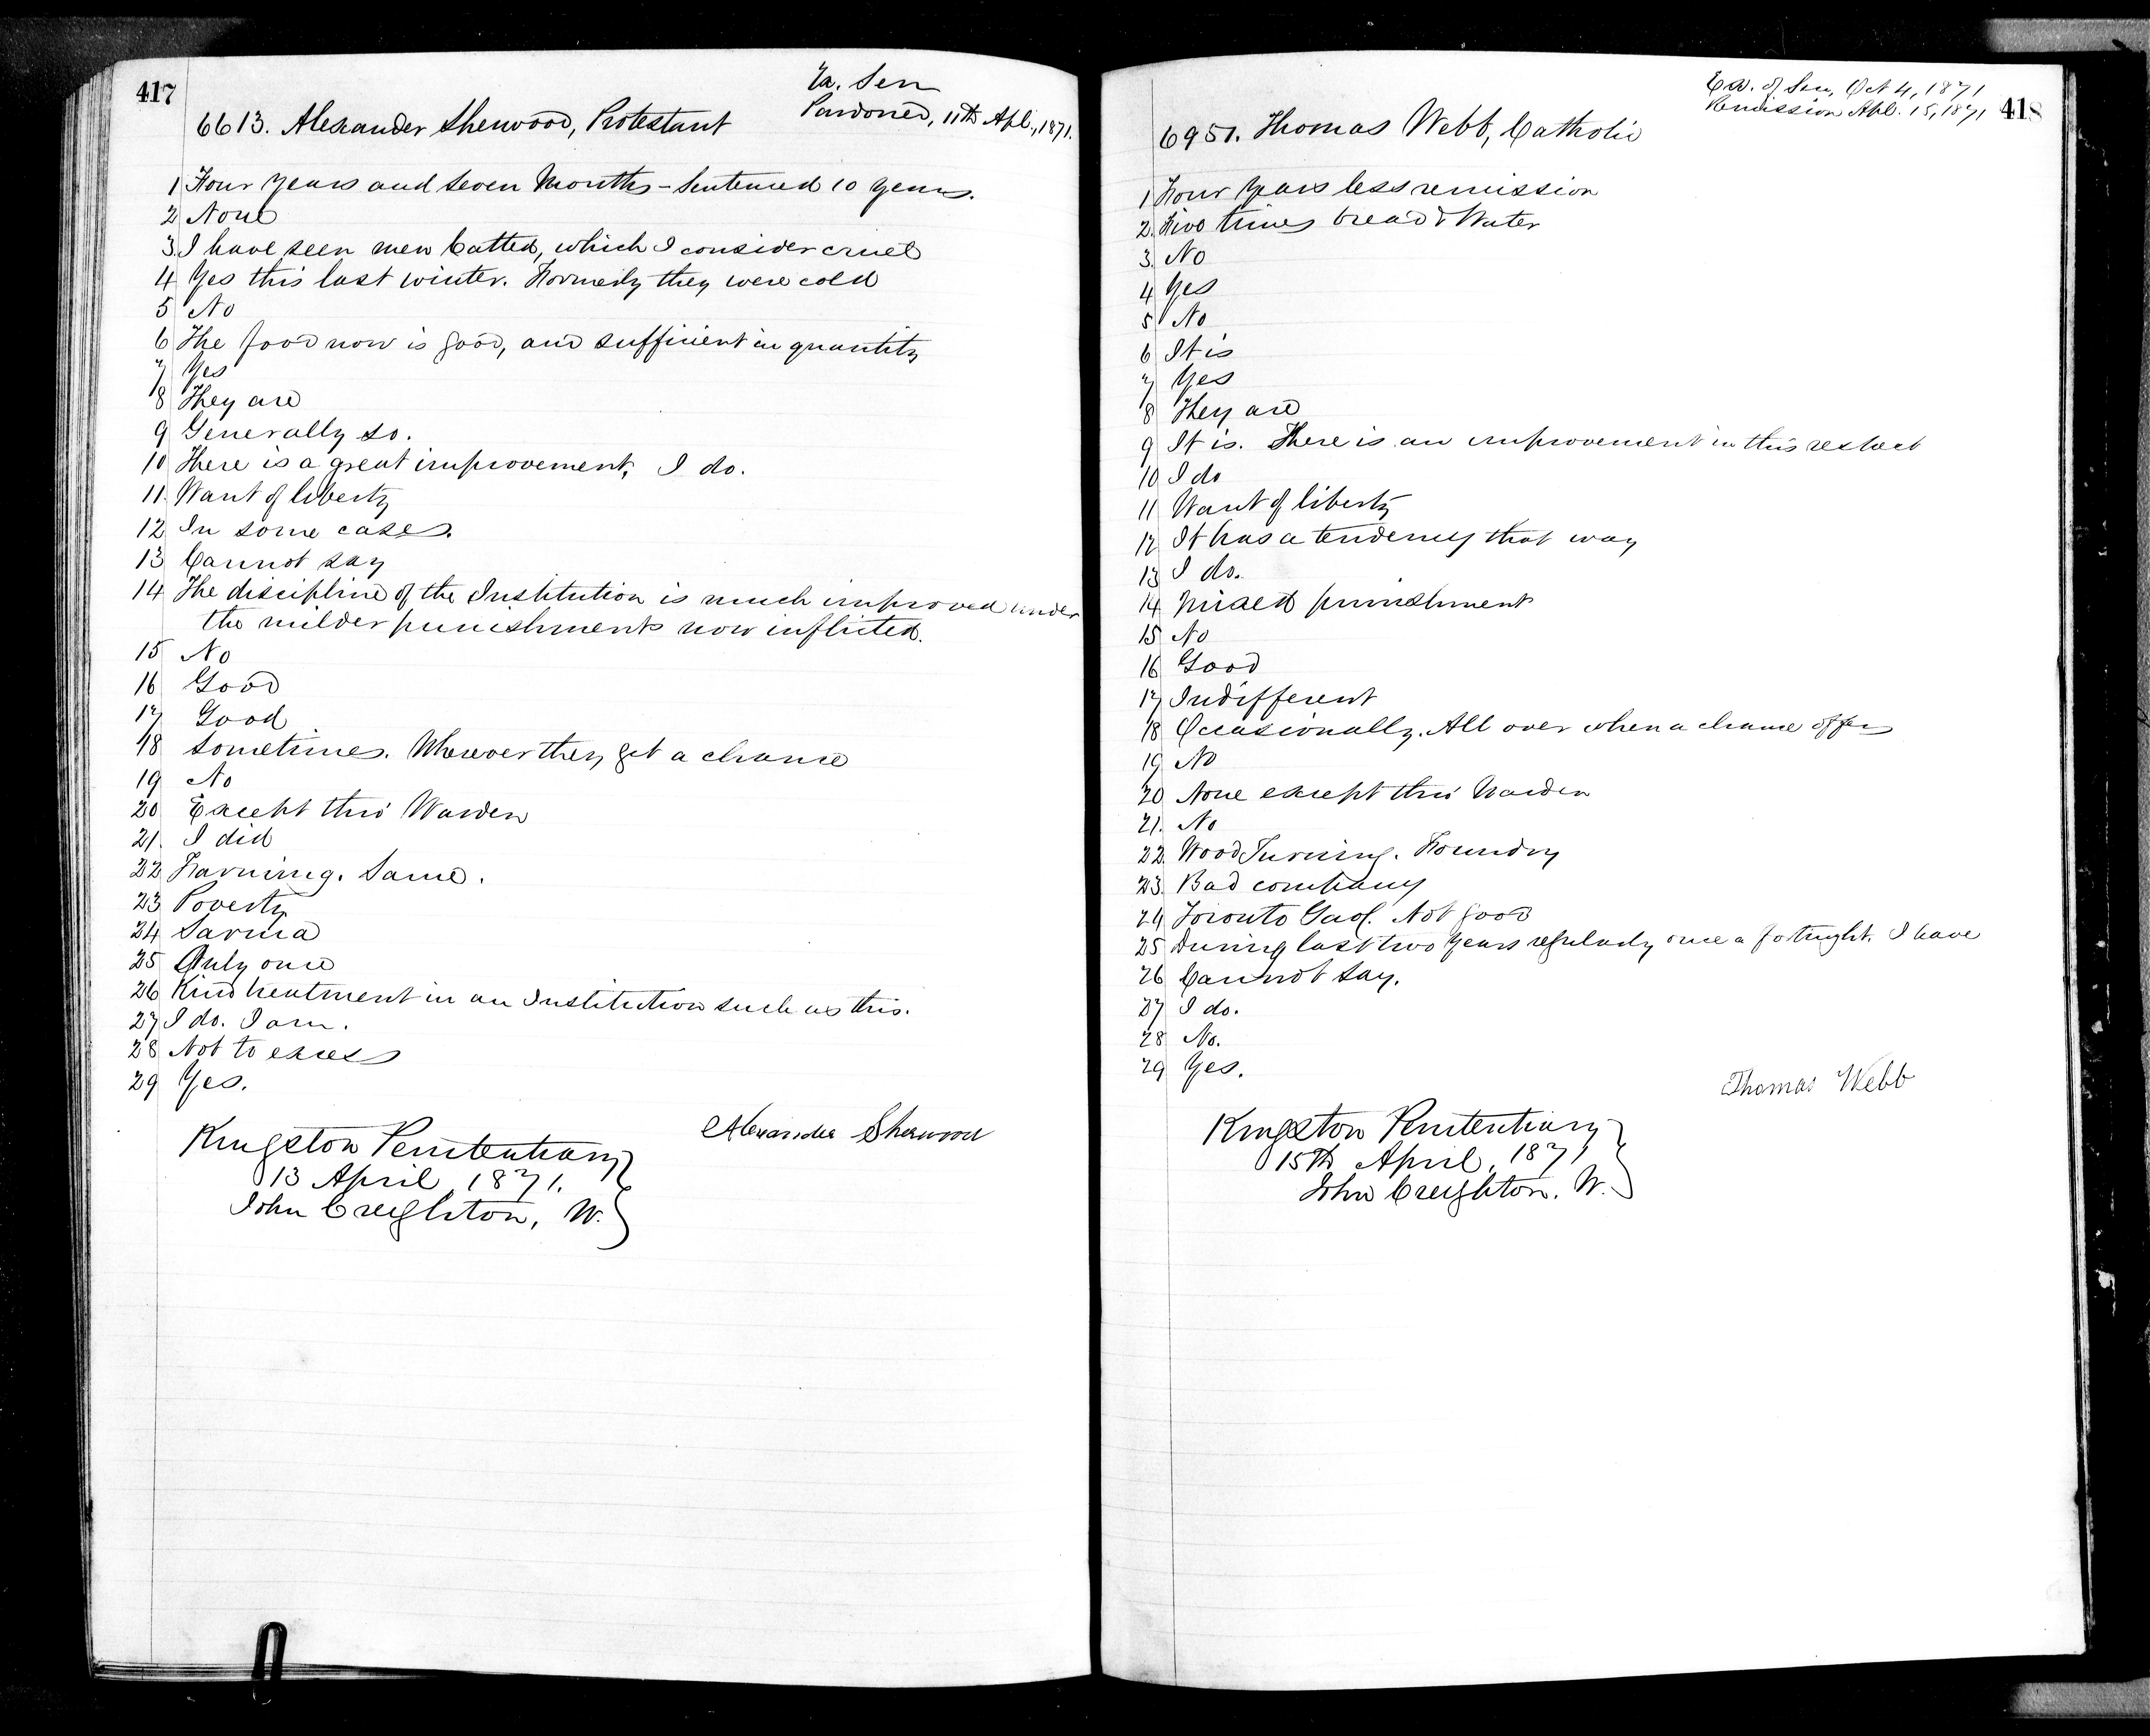 417
Ex. Sen
Pardoned, 11th Apl., 1871.
6613. Alexander Sherwood, Protestant
1 Four years and seven Months - Sentenced 10 years.
2 None
3. I have seen men Catted, which I consider cruel
4 Yes this last winter. Formerly they were cold
5 No
6 The food now is good, and sufficient in quantity
7 Yes
8 They are
9 Generally so.
10 There is a great improvement, I do.
11. Want of liberty
12 In some cases.
13 Cannot say
14 The discipline of the Institution is much improved under
the milder punishments now inflicted.
15 No
16 Good
17 Good
18 Sometimes. Wherever they get a chance
19 No
20 Except this Warden
21. I did
22 Farming. Same.
23 Poverty
24 Sarnia
25 Only once
26 Kind treatment in an Institution such as this.
27 I do. I am.
28 Not to excess
29 Yes.
Alexander Sherwood
Kingston Penitentiary
13 April, 1871.
John Creighton, W.
Ex. of Sen, Oct 4, 1871
Remission Apl. 15, 1871
418
6951. Thomas Webb, Catholic
1 Four years less remission
2. Five times bread & Water
3. No
4 Yes
5 No
6 It is
7 Yes
8 They are
9 It is. There is an improvement in this respect
10 I do
11 Want of liberty
12 It has a tendency that way
13 I do.
14 Mixed punishment
15 No
16 Good
17 Indifferent
18 Occasionally. All over when a chance offers
19 No
20 None except this Warden
21. No
22. Wood Turning. Foundry
23. Bad company
24 Toronto Gaol. Not good
25 During last two years regularly once a fotnight. I have
26 Cannot say.
27 I do.
28 No.
29 Yes.
Thomas Webb
Kingston Penitentiary
15th April, 1871
John Creighton. W.